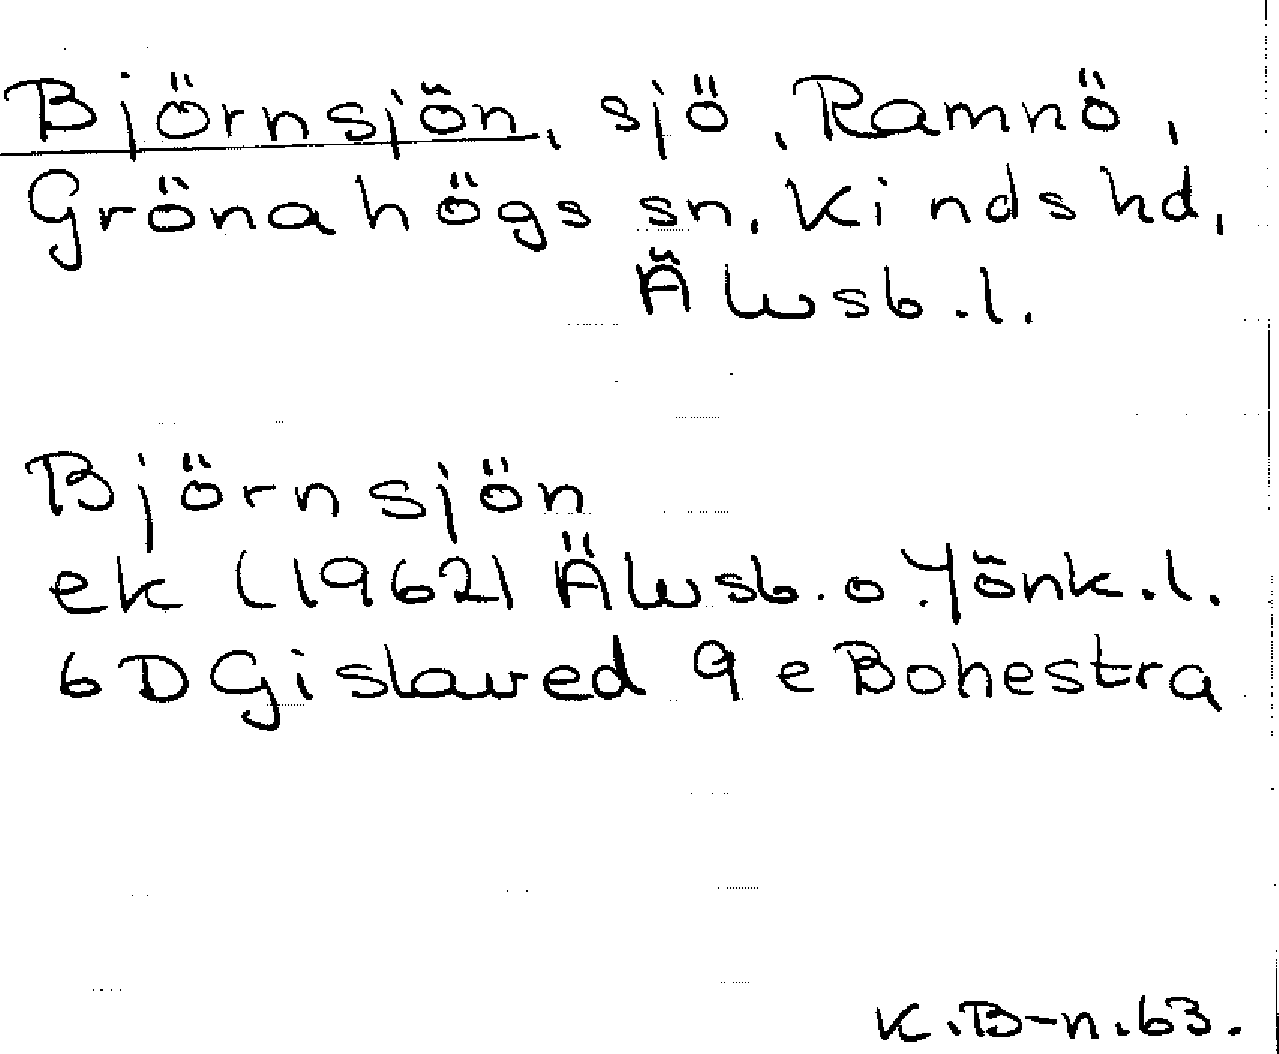 Björnsjön, sjö, Ramnö,
Grönahögs sn, Kinds hd,
Älvsb.l.
Björnsjön
ek (1962) Älvsb. o. Jönk.l.
6D Gislaved 9e Bohestra
K.B-n.63.